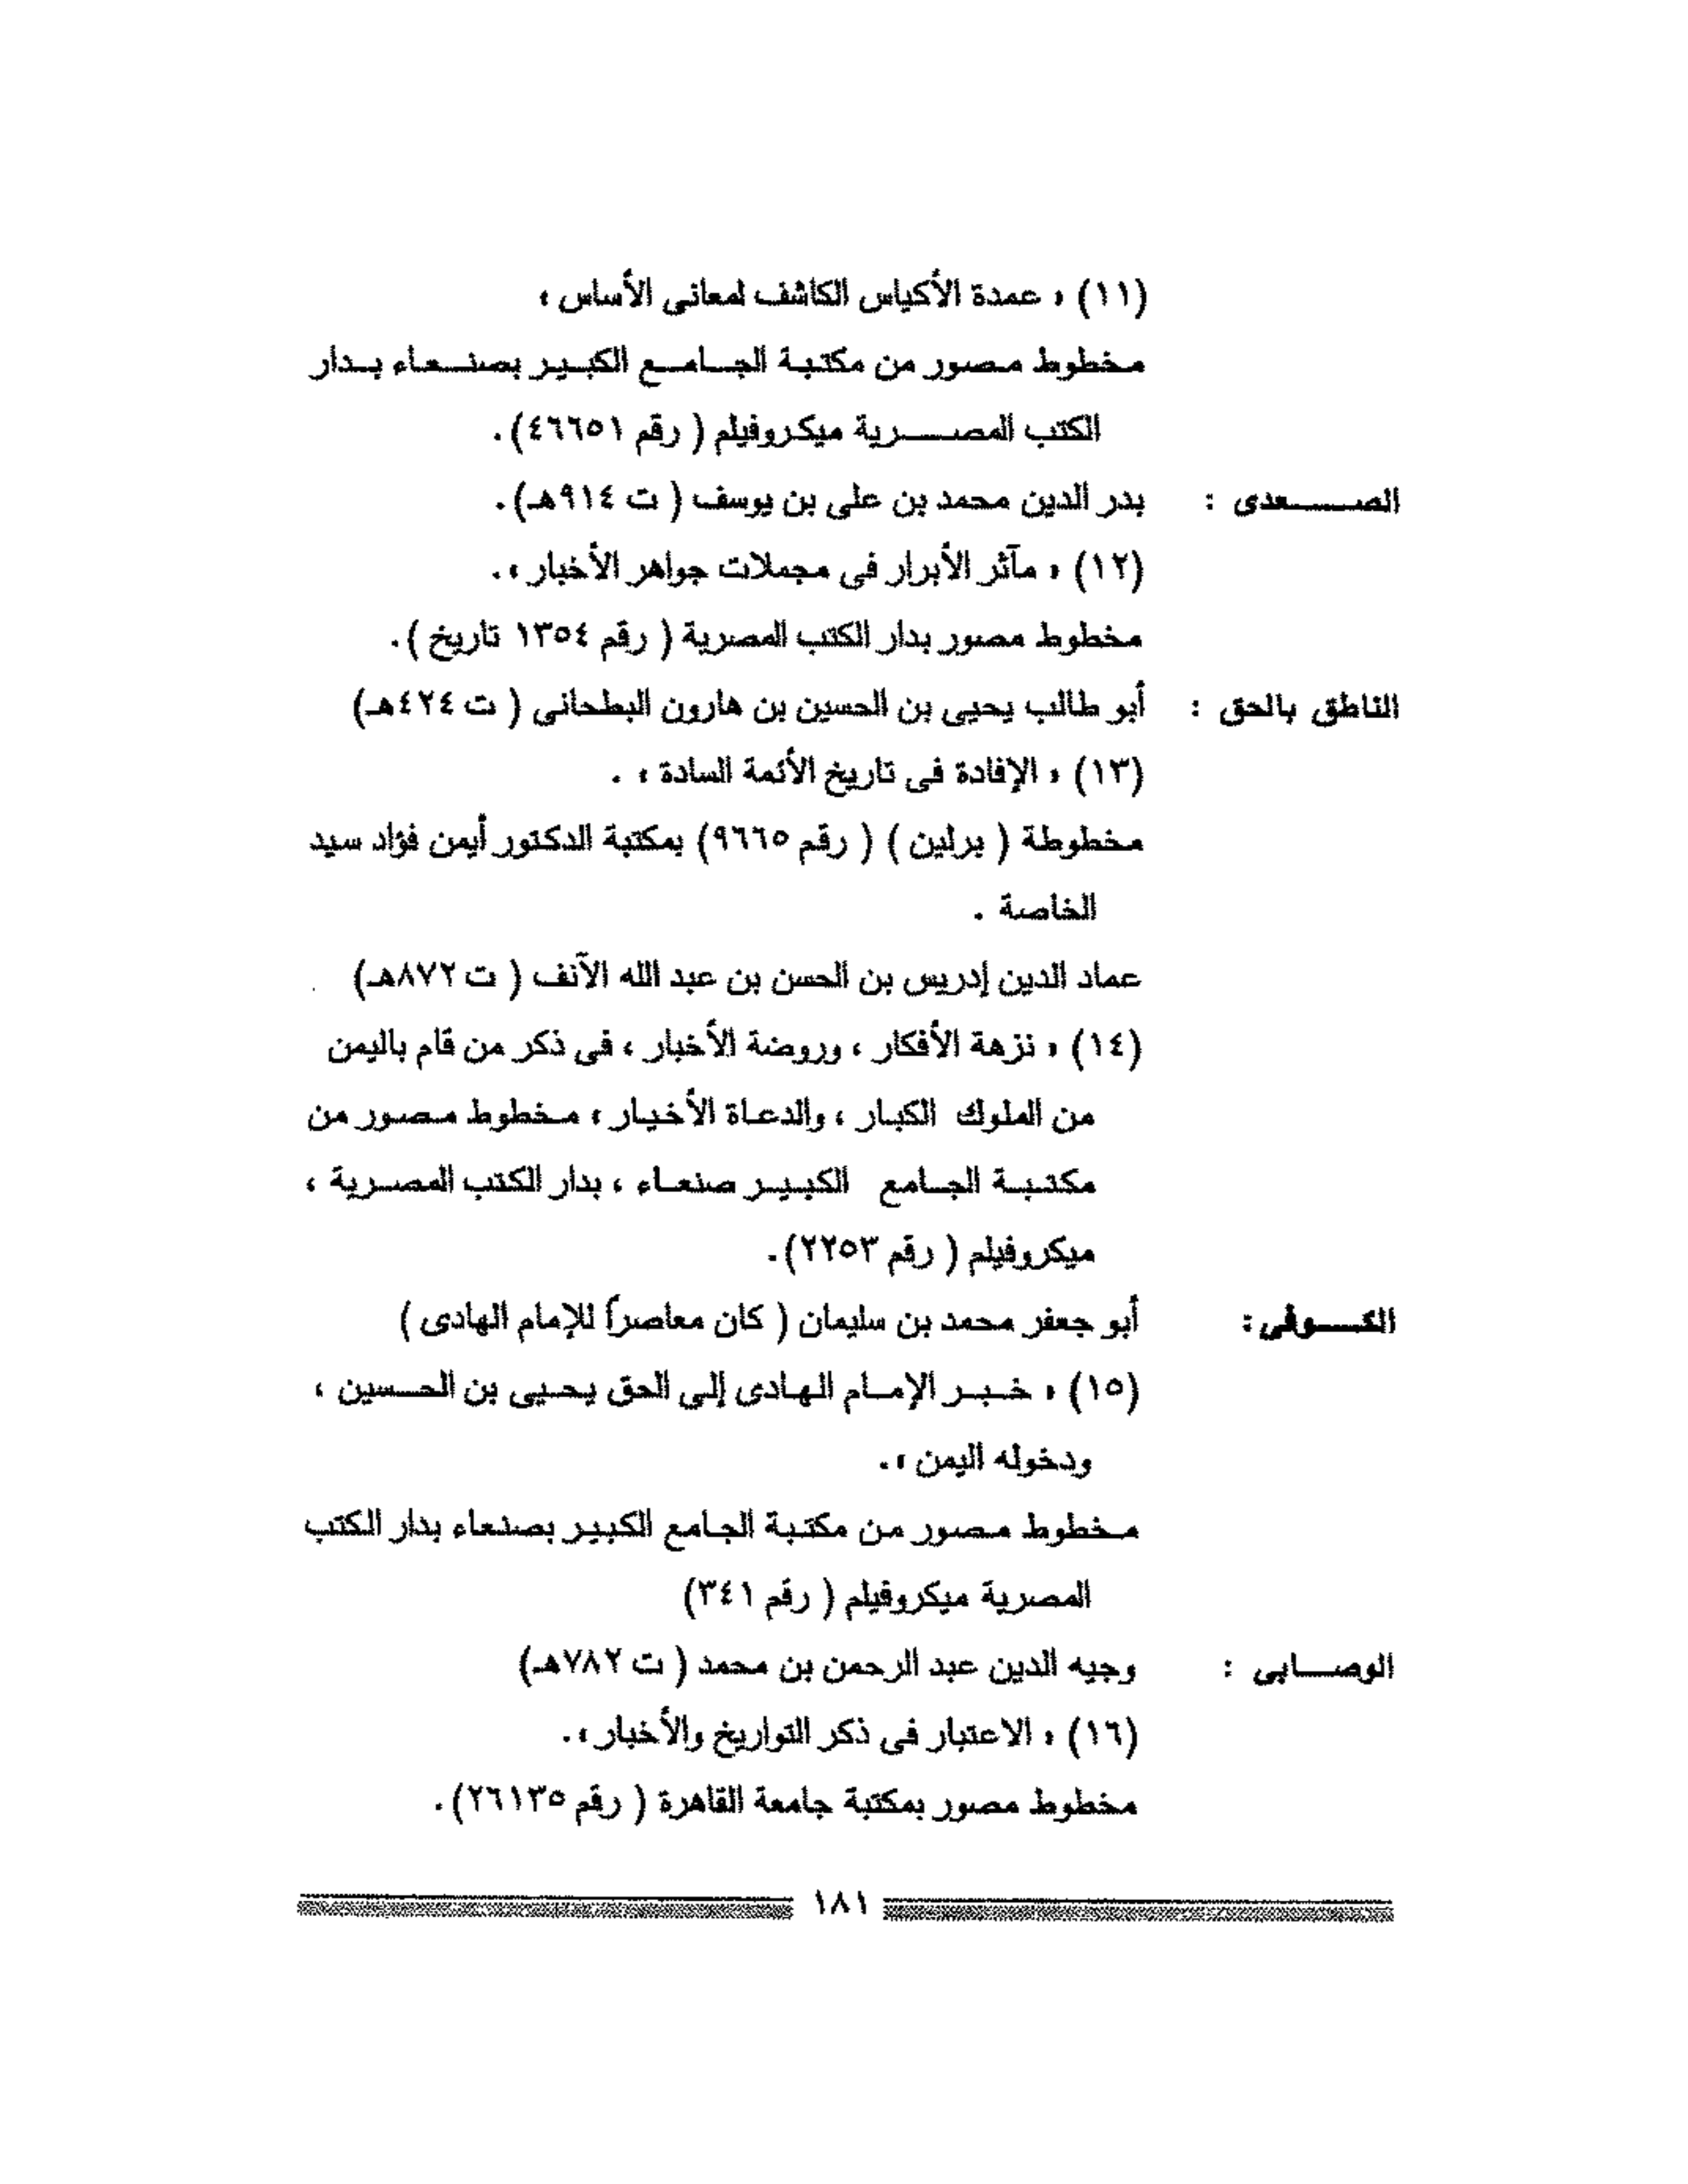 (١١) « عمدة الأكياس الكاشف لمعانى الأساس »
مخطوط مصور من مكتبة الجامع الكبير بصنعاء بدار
الكتب المصرية ميكروفيلم ( رقم ٤٦٦٥١).
الصعدى : بدر الدين محمد بن على بن يوسف ( ت ٩١٤هـ).
(١٢) « مآثر الأبرار فى مجملات جواهر الأخبار ».
مخطوط مصور بدار الكتب المصرية ( رقم ١٣٥٤ تاريخ ).
الناطق بالحق : أبو طالب يحيى بن الحسين بن هارون البطحانى ( ت ٤٢٤هـ)
(١٣) « الإفادة فى تاريخ الأئمة السادة » .
مخطوطة ( برلين ) ( رقم ٩٦٦٥) بمكتبة الدكتور أيمن فؤاد سيد
الخاصة .
عماد الدين إدريس بن الحسن بن عبد الله الآنف ( ت ٨٧٢هـ)
(١٤) « نزهة الأفكار ، وروضة الأخبار ، فى ذكر من قام باليمن
من الملوك الكبار ، والدعاة الأخيار » مخطوط مصور من
مكتبة الجامع الكبير صنعاء ، بدار الكتب المصرية ،
ميكروفيلم ( رقم ٢٢٥٣).
الكوفى : أبو جعفر محمد بن سليمان ( كان معاصراً للإمام الهادى )
(١٥) « خبر الإمام الهادى إلى الحق يحيى بن الحسين ،
ودخوله اليمن ».
مخطوط مصور من مكتبة الجامع الكبير بصنعاء بدار الكتب
المصرية ميكروفيلم ( رقم ٣٤١)
الوصابى : وجيه الدين عبد الرحمن بن محمد ( ت ٧٨٢هـ)
(١٦) « الاعتبار فى ذكر التواريخ والأخبار ».
مخطوط مصور بمكتبة جامعة القاهرة ( رقم ٢٦١٣٥).
١٨١